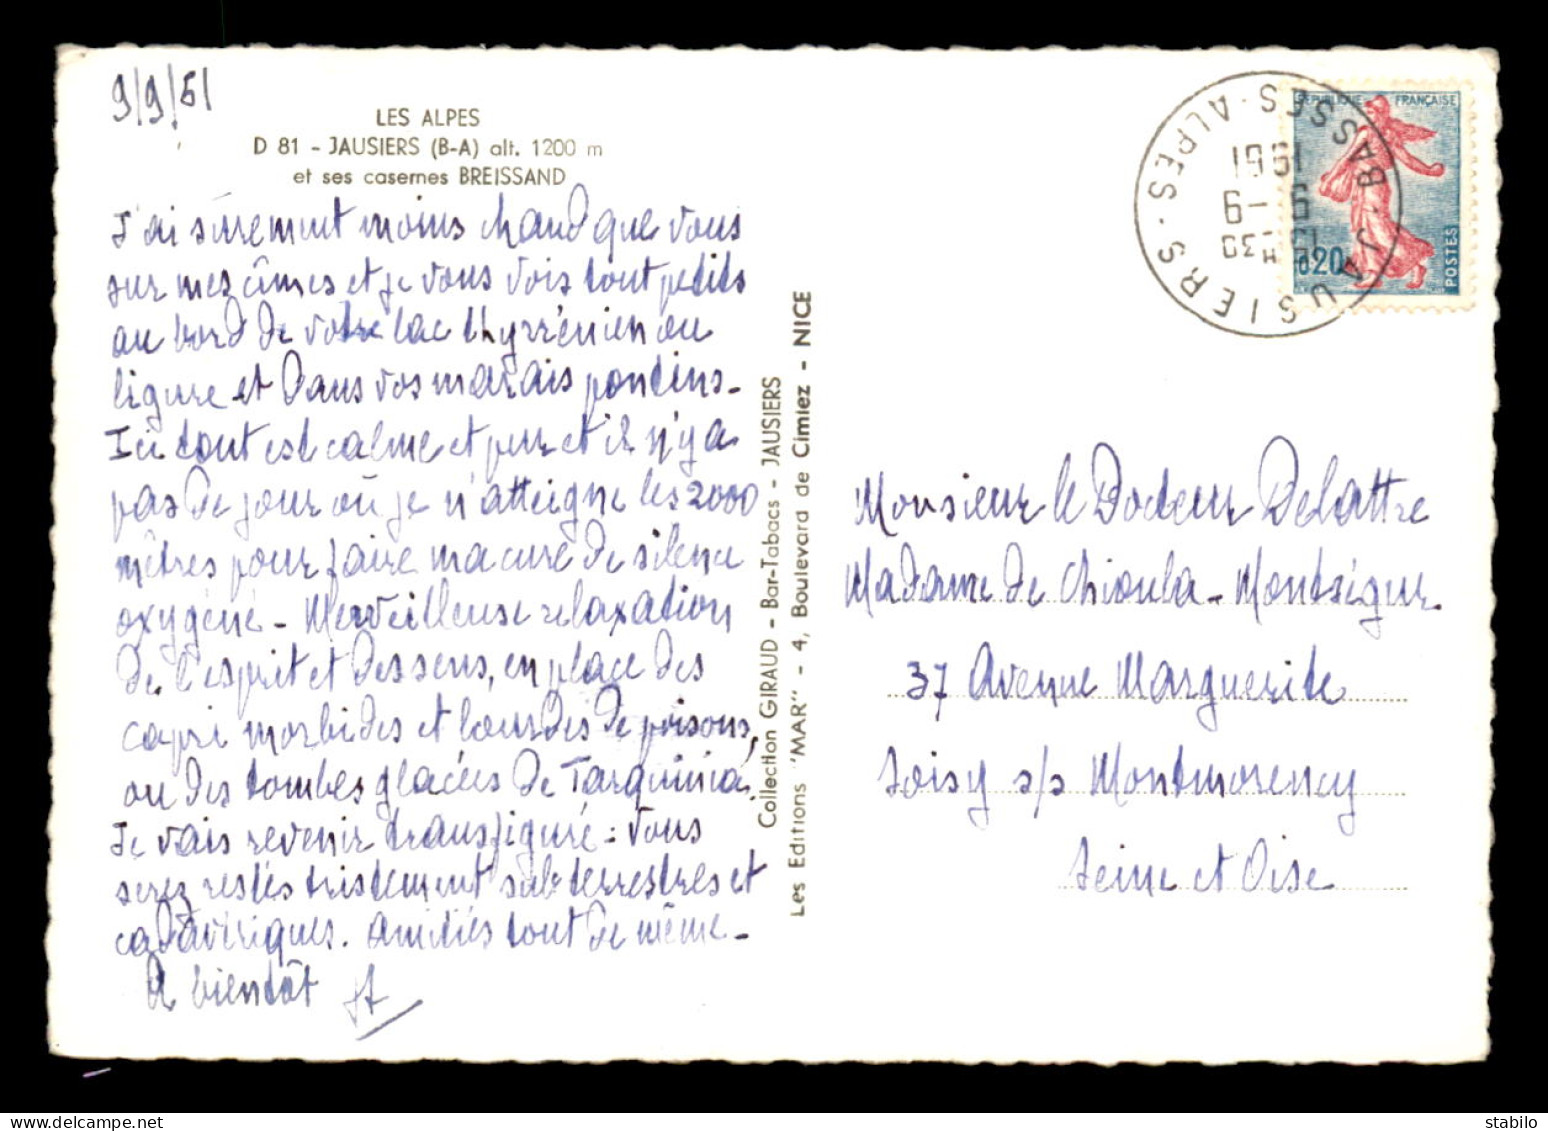 9/9/61
LES ALPES
D 81 - JAUSIERS (B-A) alt. 1200 m
et ses casernes BREISSAND
J'ai sûrement moins chaud que vous
sur mes cîmes et je vous vois tout petits
au bord de votre lac thyrrénien ou
ligure et dans vos marais pontins -
Ici tout est calme et pur et il n'y a
pas de jour où je n'atteigne les 2000
mètres pour faire ma cure de silence
oxygéné - Merveilleuse relaxation
de l'esprit et des sens, en place des
capri morbides et lourdes de poisons,
ou des tombes glacées de Tarquinia.
Je vais revenir transfiguré : vous
serez restés tristement subterrestres et
cadavériques. Amitiés tout de même -
A bientôt
Collection GIRAUD - Bar-Tabacs - JAUSIERS
Les Editions "MAR" - 4, Boulevard de Cimiez - NICE
JAUSIERS. BASSES-ALPES.
15H30
9-9
1961
REPUBLIQUE FRANÇAISE
0,20
POSTES
Monsieur le Docteur Delattre
Madame de Chioula - Montségur
37 Avenue Marguerite
Soisy s/s Montmorency
Seine et Oise
stamps-dilo